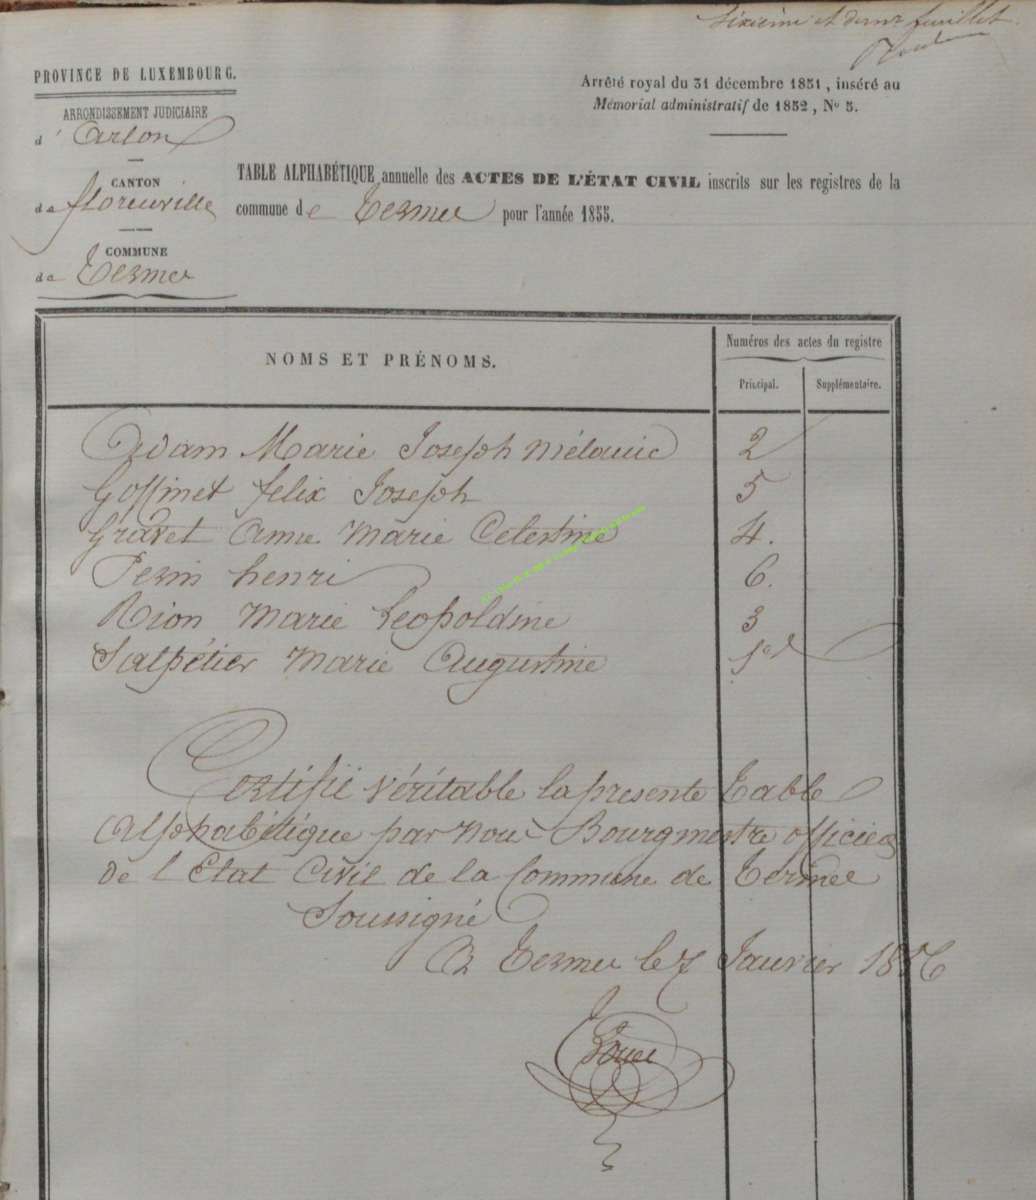 Sixième et dernr feuillet
PROVINCE DE LUXEMBOURG.
ARRONDISSEMENT JUDICIAIRE
d'Arlon
CANTON
de florenville
COMMUNE
de Termes
Arrêté royal du 31 décembre 1851, inséré au
Mémorial administratif de 1852, No 5.
TABLE ALPHABÉTIQUE annuelle des ACTES DE L'ÉTAT CIVIL inscrits sur les registres de la
commune de Termes pour l'année 1855.
NOMS ET PRÉNOMS.
Numéros des actes du registre
Principal. Supplémentaire.
Adam Marie Joseph Mélanie 2
Goffinet felix Joseph 5
Gravet Anne Marie Celestine 4.
Persin henri 6.
Rion Marie Leopoldine 3
Salpétier Marie Augustine 1er
Certifié véritable la presente Table
Alphabétique par Nous Bourgmestre officier
de l'Etat Civil de la Commune de Termes
Soussigné
A Termes le 7 Janvier 1856